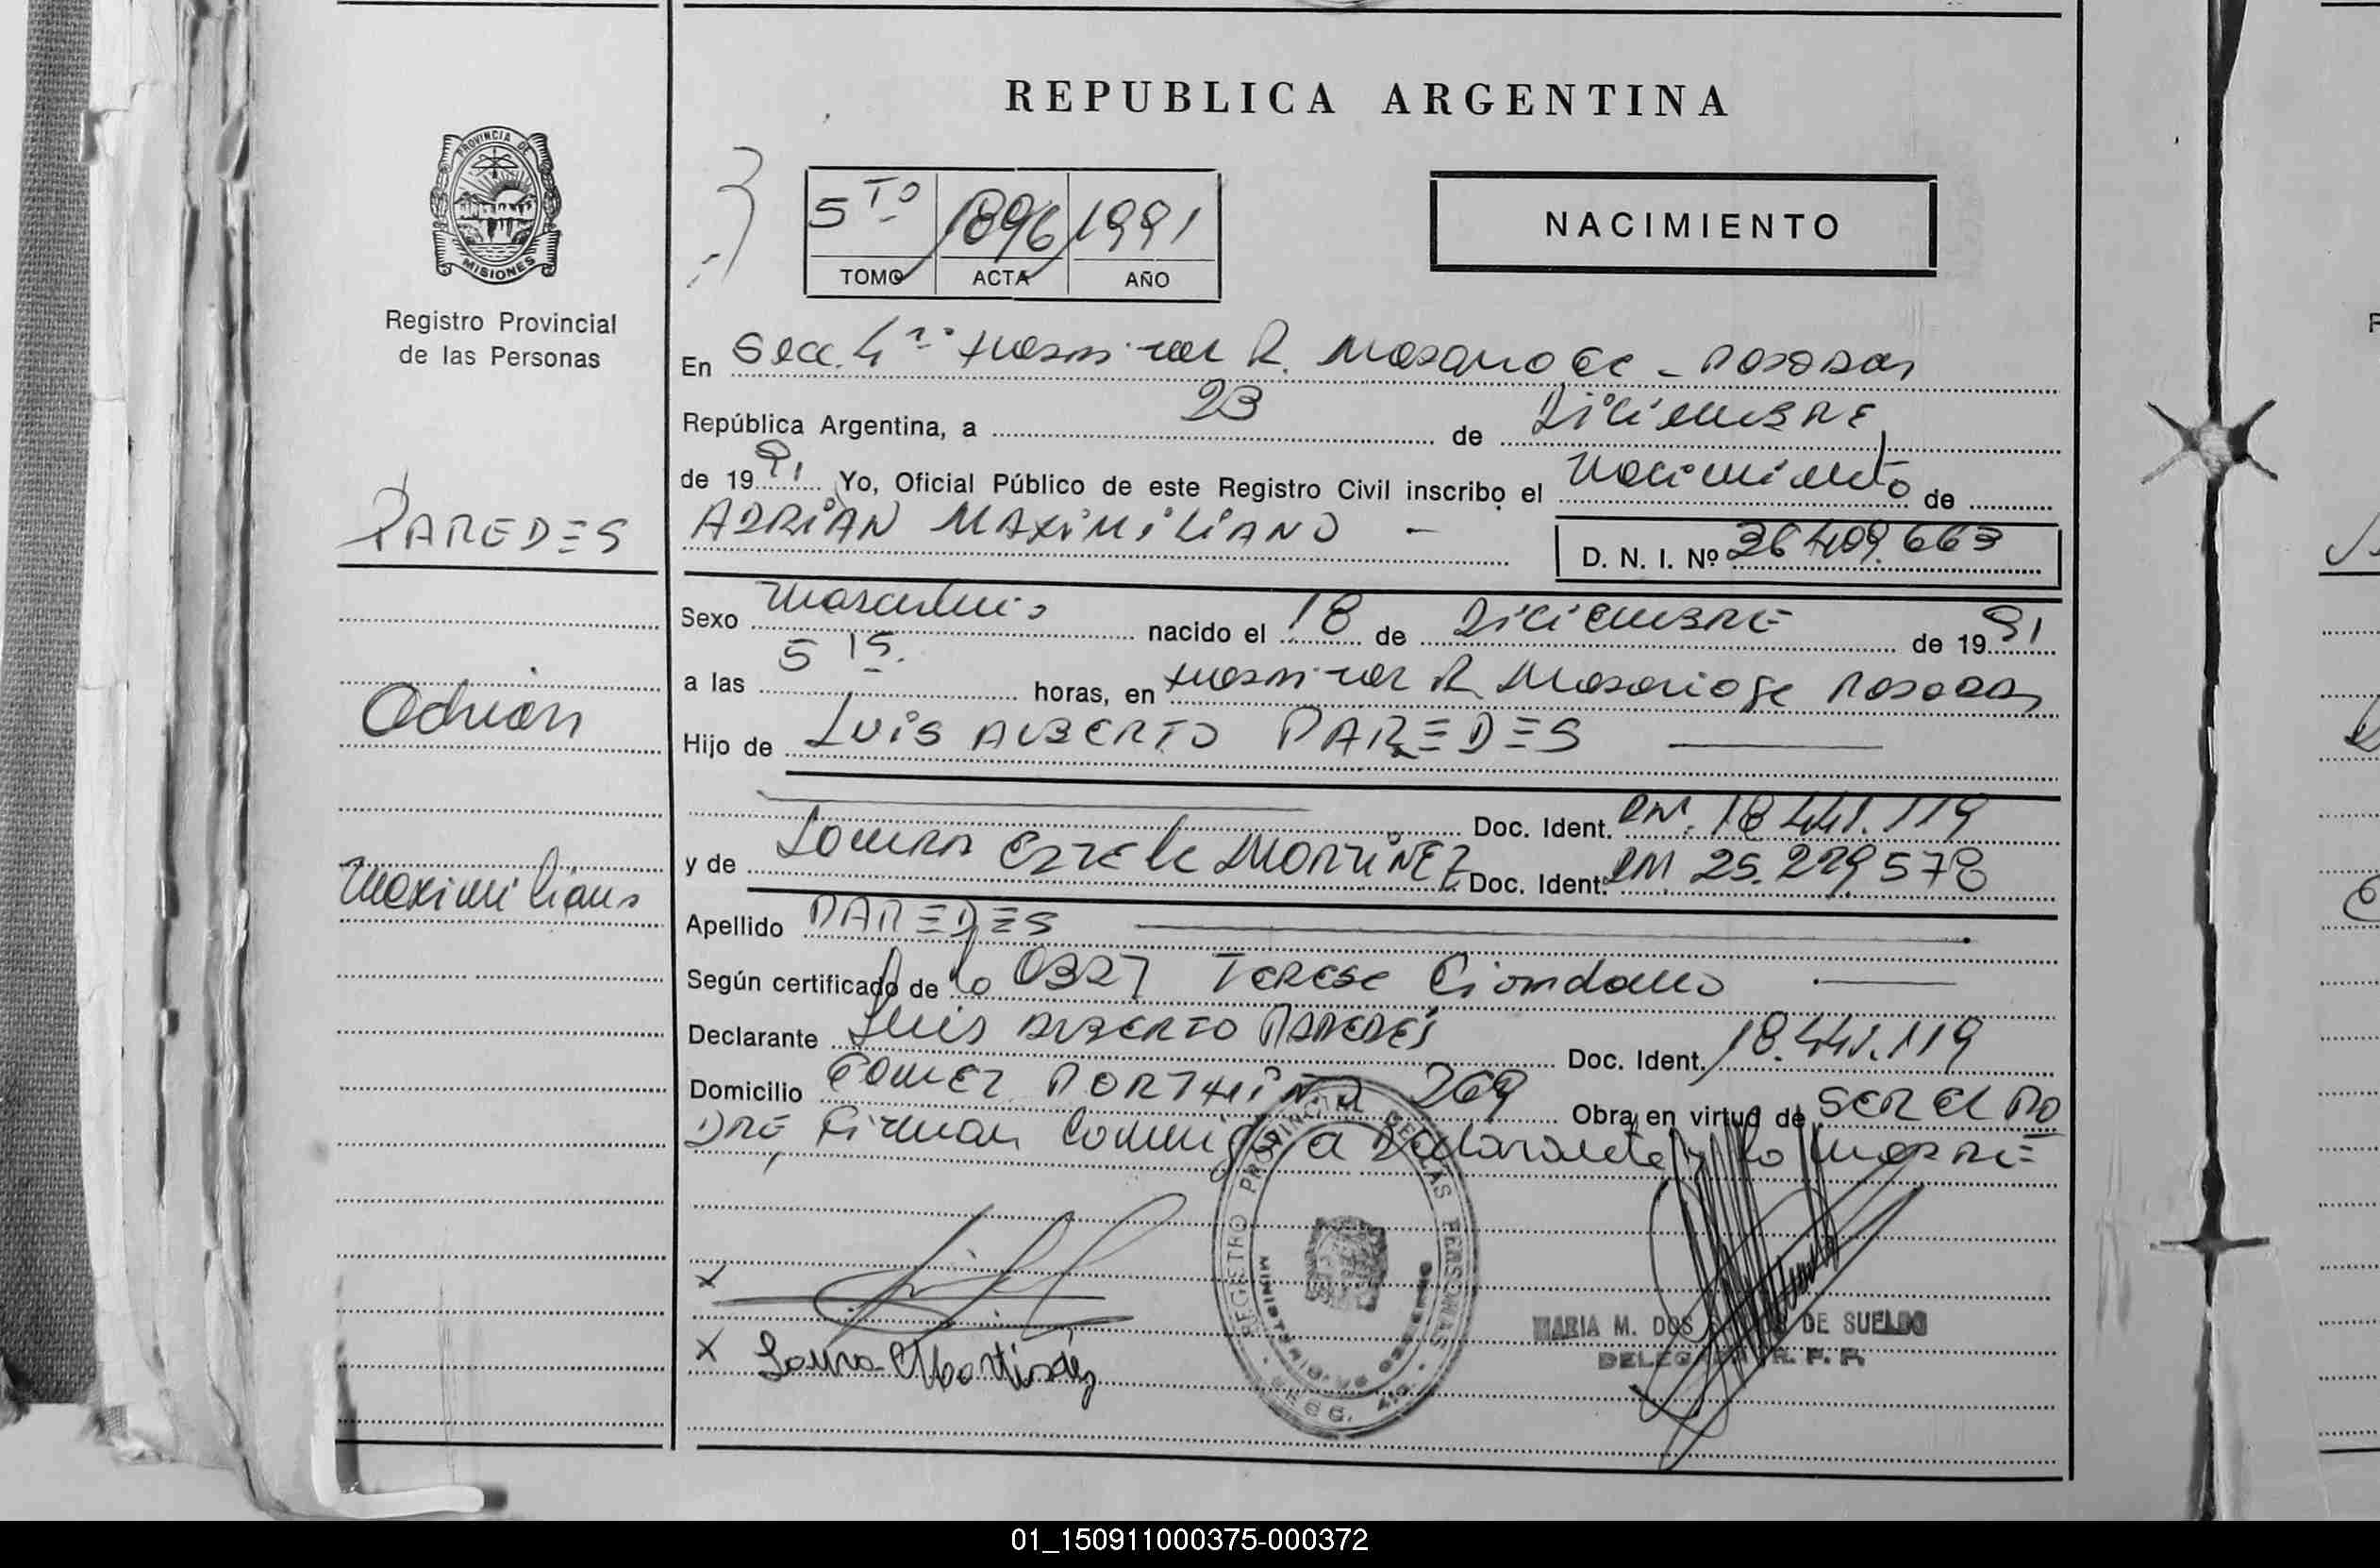 REPUBLICA ARGENTINA
PROVINCIA DE
MISIONES
Registro Provincial
de las Personas
5TO 1896 1991
TOMO ACTA AÑO
NACIMIENTO
En Secc. 4ta Hospital R. Madariaga - Posadas
República Argentina, a 23 de Diciembre
de 1991 Yo, Oficial Público de este Registro Civil inscribo el Nacimiento de
PAREDES
ADRIAN MAXIMILIANO -
D. N. I. Nº 36.409.663
Sexo Masculino nacido el 18 de Diciembre de 1991
a las 5 15. horas, en Hospital R. Madariaga Posadas
Adrián
Hijo de LUIS ALBERTO PAREDES
Doc. Ident. DNI. 18.441.119
y de Laura MARTINEZ Doc. Ident. DNI. 25.229.578
Maximiliano
Apellido PAREDES
Según certificado de la 0327 Terese Giordano
Declarante Luis ALBERTO PAREDES Doc. Ident. 18.441.119
Domicilio GOMEZ PORTHIÑO 269 Obra en virtud de SER EL PA
DRE, Firman Conmigo el Declarante y la MADRE
REGISTRO PROVINCIAL DE LAS PERSONAS
MINISTERIO DE GOBIERNO
X
X Laura Martinez
MARIA M. DOS DE SUELDO
R. P. P.
01_150911000375-000372